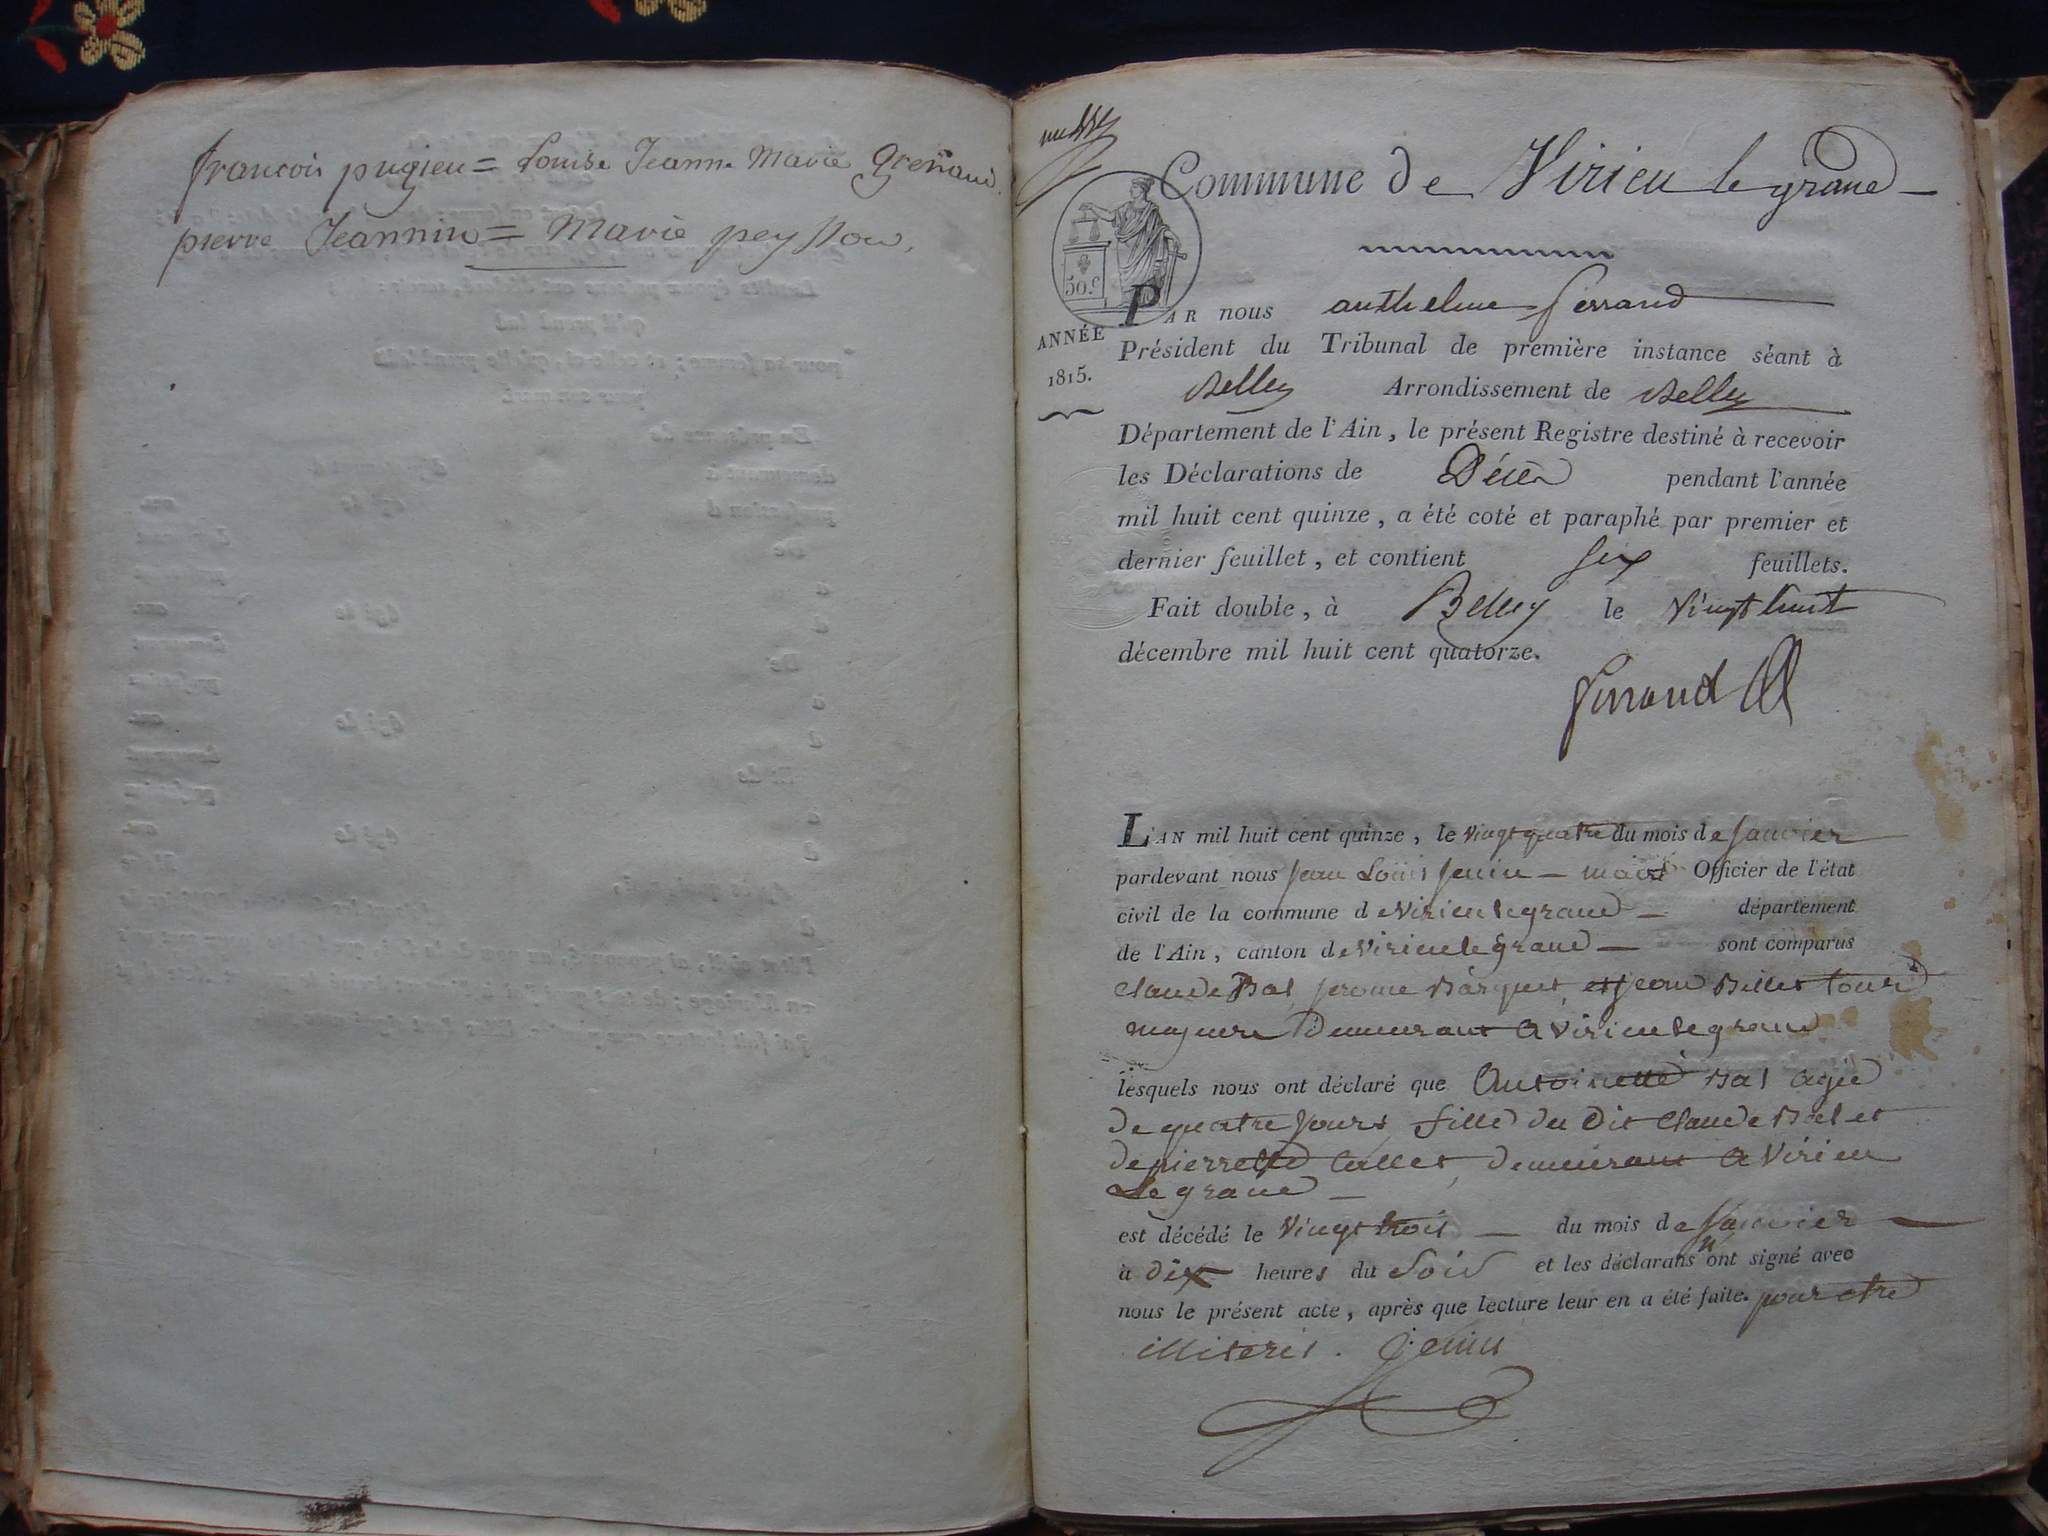 francois pugieu = Louise Jeanne Marie Grenaud.
pierre Jeannin = Marie peysson,
Commune de Virieu le grand
50 c
ANNÉE
1815.
PAR nous anthelme ferrand
Président du Tribunal de première instance séant à
Belley Arrondissement de Belley
Département de l'Ain, le présent Registre destiné à recevoir
les Déclarations de Décès pendant l'année
mil huit cent quinze, a été coté et paraphé par premier et
dernier feuillet, et contient six feuillets.
Fait double, à Belley le vingt huit
décembre mil huit cent quatorze.
ferrand
L'AN mil huit cent quinze, le vingt quatre du mois de janvier
pardevant nous jean Louis jenin - maire Officier de l'état
civil de la commune de virieu le grand - département
de l'Ain, canton de virieu le grand - sont comparus
claude Bal, jerome Barquet, et jean Billet tous
majeurs demeurant a virieu le grand
lesquels nous ont déclaré que Antoinette Bal agée
de quatre jours fille du dit claude Bal et
de pierrette callet, demeurant a virieu
Le grand -
est décédé le vingt trois - du mois de janvier -
à dix heures du soir et les déclarans n'ont signé avec
nous le présent acte, après que lecture leur en a été faite. pour etre
illiteris. jenin